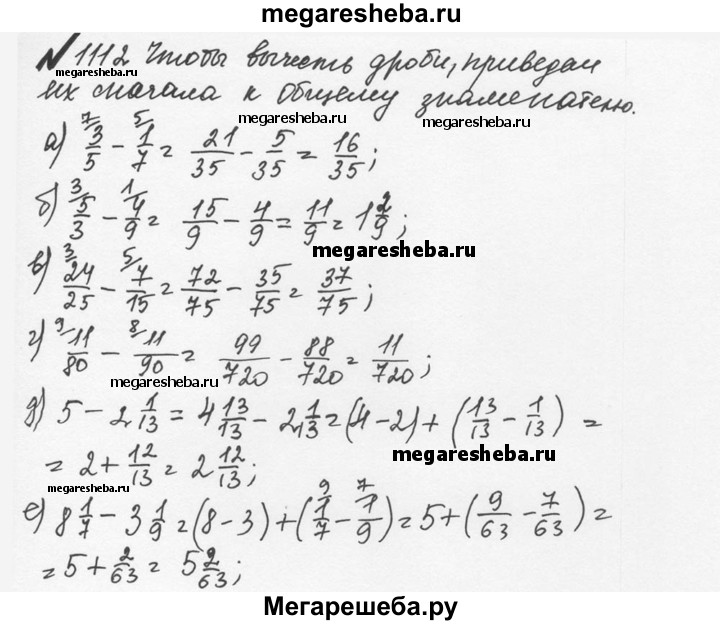 megaresheba.ru
N 1112 Чтобы вычесть дроби, приведем
megaresheba.ru
их сначала к общему знаменателю.
megaresheba.ru megaresheba.ru
а) ⁷/ 3/5 − ⁵/ 1/7 = 21/35 − 5/35 = 16/35;
б) ³/ 5/3 − ¹/ 4/9 = 15/9 − 4/9 = 11/9 = 1 2/9;
megaresheba.ru
в) ³/ 24/25 − ⁵/ 7/15 = 72/75 − 35/75 = 37/75;
г) ⁹/ 11/80 − ⁸/ 11/90 = 99/720 − 88/720 = 11/720;
megaresheba.ru
д) 5 − 2 1/13 = 4 13/13 − 2 1/13 = (4−2) + (13/13 − 1/13) =
= 2 + 12/13 = 2 12/13;
megaresheba.ru
megaresheba.ru
е) 8 1/7 − 3 1/9 = (8−3) + (⁹/ 1/7 − ⁷/ 1/9) = 5 + (9/63 − 7/63) =
= 5 + 2/63 = 5 2/63;
Мегарешеба.ру